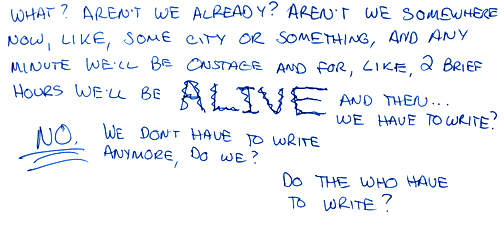 WHAT? AREN'T WE ALREADY? AREN'T WE SOMEWHERE
NOW, LIKE, SOME CITY OR SOMETHING, AND ANY
MINUTE WE'LL BE ONSTAGE AND FOR, LIKE, 2 BRIEF
HOURS WE'LL BE ALIVE AND THEN...
WE HAVE TO WRITE?
NO. WE DON'T HAVE TO WRITE
ANYMORE, DO WE?
DO THE WHO HAVE
TO WRITE?